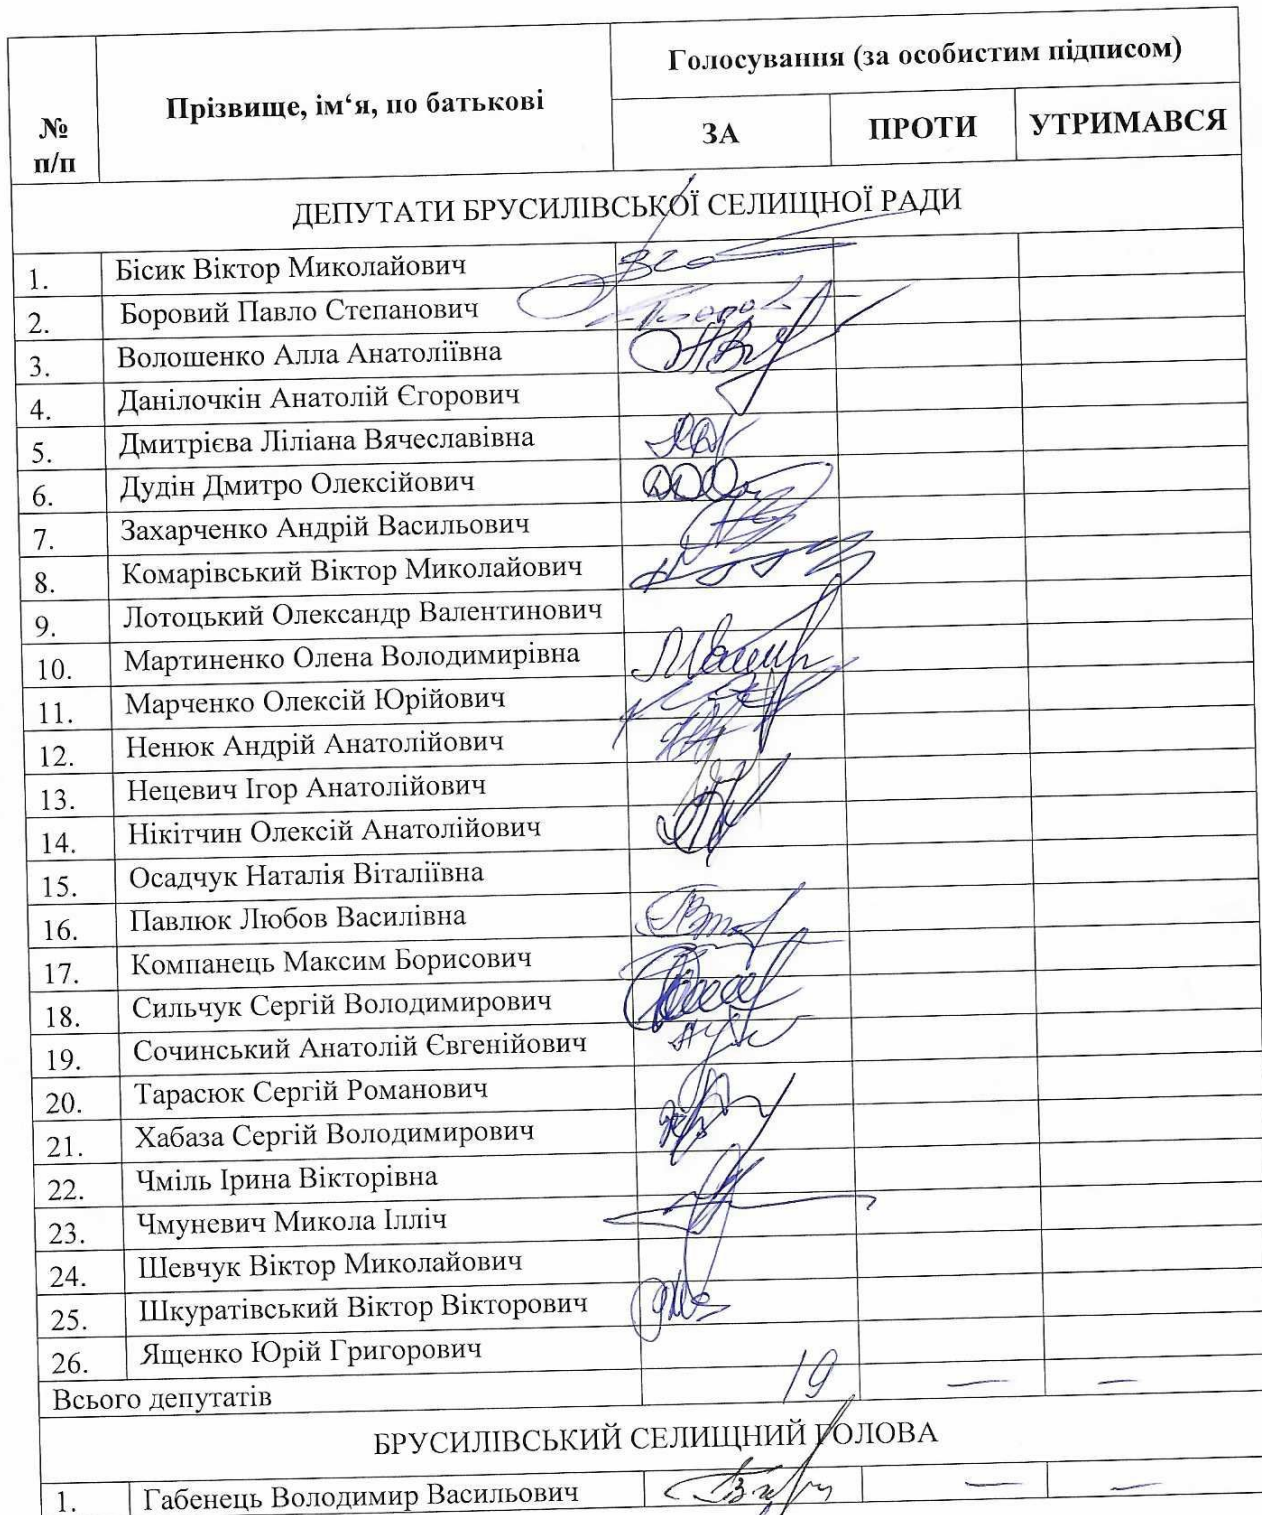 Голосування (за особистим підписом)
№ п/п
Прізвище, ім‘я, по батькові
ЗА ПРОТИ УТРИМАВСЯ
ДЕПУТАТИ БРУСИЛІВСЬКОЇ СЕЛИЩНОЇ РАДИ
1. Бісик Віктор Миколайович
2. Боровий Павло Степанович
3. Волошенко Алла Анатоліївна
4. Данілочкін Анатолій Єгорович
5. Дмитрієва Ліліана Вячеславівна
6. Дудін Дмитро Олексійович
7. Захарченко Андрій Васильович
8. Комарівський Віктор Миколайович
9. Лотоцький Олександр Валентинович
10. Мартиненко Олена Володимирівна
11. Марченко Олексій Юрійович
12. Ненюк Андрій Анатолійович
13. Нецевич Ігор Анатолійович
14. Нікітчин Олексій Анатолійович
15. Осадчук Наталія Віталіївна
16. Павлюк Любов Василівна
17. Компанець Максим Борисович
18. Сильчук Сергій Володимирович
19. Сочинський Анатолій Євгенійович
20. Тарасюк Сергій Романович
21. Хабаза Сергій Володимирович
22. Чміль Ірина Вікторівна
23. Чмуневич Микола Ілліч
24. Шевчук Віктор Миколайович
25. Шкуратівський Віктор Вікторович
26. Ященко Юрій Григорович
Всього депутатів 19 — —
БРУСИЛІВСЬКИЙ СЕЛИЩНИЙ ГОЛОВА
1. Габенець Володимир Васильович — —